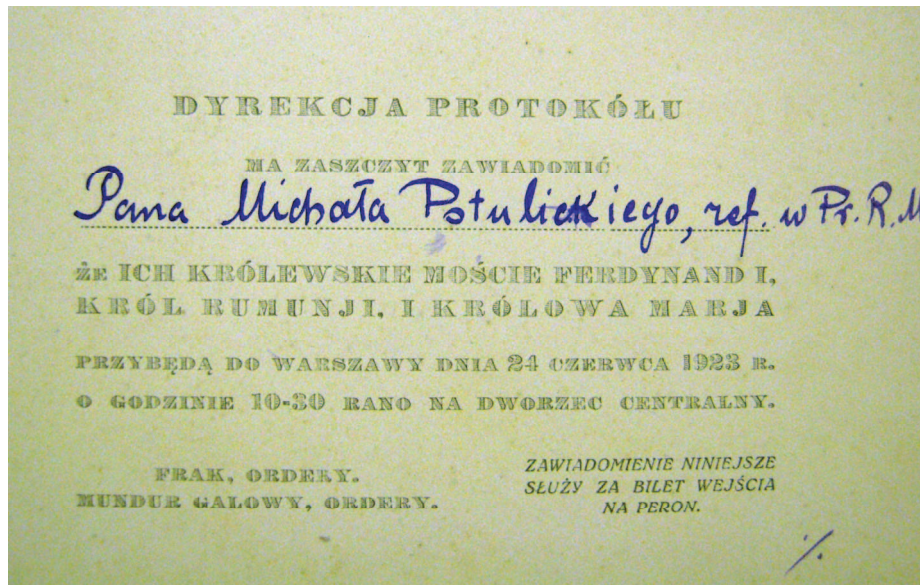 DYREKCJA PROTOKÓŁU
MA ZASZCZYT ZAWIADOMIĆ
Pana Michała Potulickiego, ref. w Pr. R. M
że ICH KRÓLEWSKIE MOŚCIE FERDYNAND I,
KRÓL RUMUNJI, I KRÓLOWA MARJA
PRZYBĘDĄ DO WARSZAWY DNIA 24 CZERWCA 1923 R.
O GODZINIE 10-30 RANO NA DWORZEC CENTRALNY.
FRAK, ORDERY.
MUNDUR GALOWY, ORDERY.
ZAWIADOMIENIE NINIEJSZE
SŁUŻY ZA BILET WEJŚCIA
NA PERON.
./.